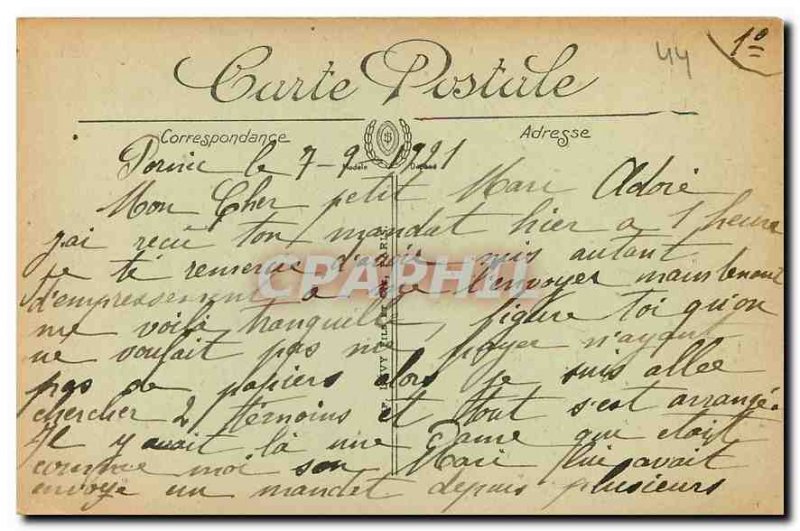 44
1º
Carte Postale
Correspondance
Adresse
Modèle Déposé
Pornic le 7-9-1921
Mon Cher petit Mari Adoré
j'ai reçu ton mandat hier a 1 heure
je te remercie d'avoir mis autant
d'empressement a me l'envoyer maintenant
me voilà tranquille, figure toi qu'on
ne voulait pas me payer n'ayant
pas de papiers alors je suis allee
chercher 2 temoins et tout s'est arrangé.
Il y avait là une Dame que etait
comme moi son Mari lui avait
envoye un mandat depuis plusieurs
LEVY FILS ET Cie, PARIS
CPARAMA